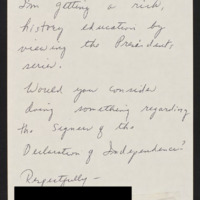 I'm getting a rich,
history education by
viewing the President
series.
Would you consider
doing something regarding
the Signers of the
Declaration of Independence?
Respectfully —